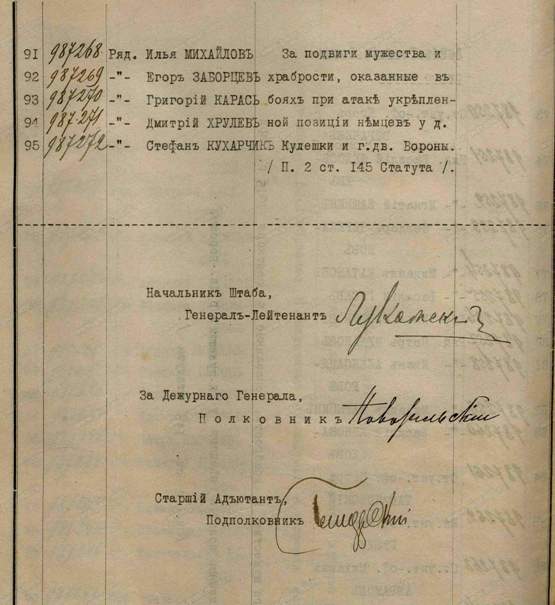 91 987268 Ряд. Илья МИХАЙЛОВЪ За подвиги мужества и
92 987269 -"- Егоръ ЗАБОРЦЕВЪ храбрости, оказанные въ
93 987270 -"- Григорій КАРАСЬ бояхъ при атакѣ укрѣплен-
94 987271 -"- Дмитрій ХРУЛЕВЪ ной позиціи нѣмцевъ у д.
95 987272 -"- Стефанъ КУХАРЧИКЪ Кулешки и г.дв. Вороны.
/ П. 2 ст. 145 Статута /.
Начальникъ Штаба,
Генералъ-Лейтенантъ
За Дежурнаго Генерала,
Полковникъ
Старшій Адъютантъ,
Подполковникъ